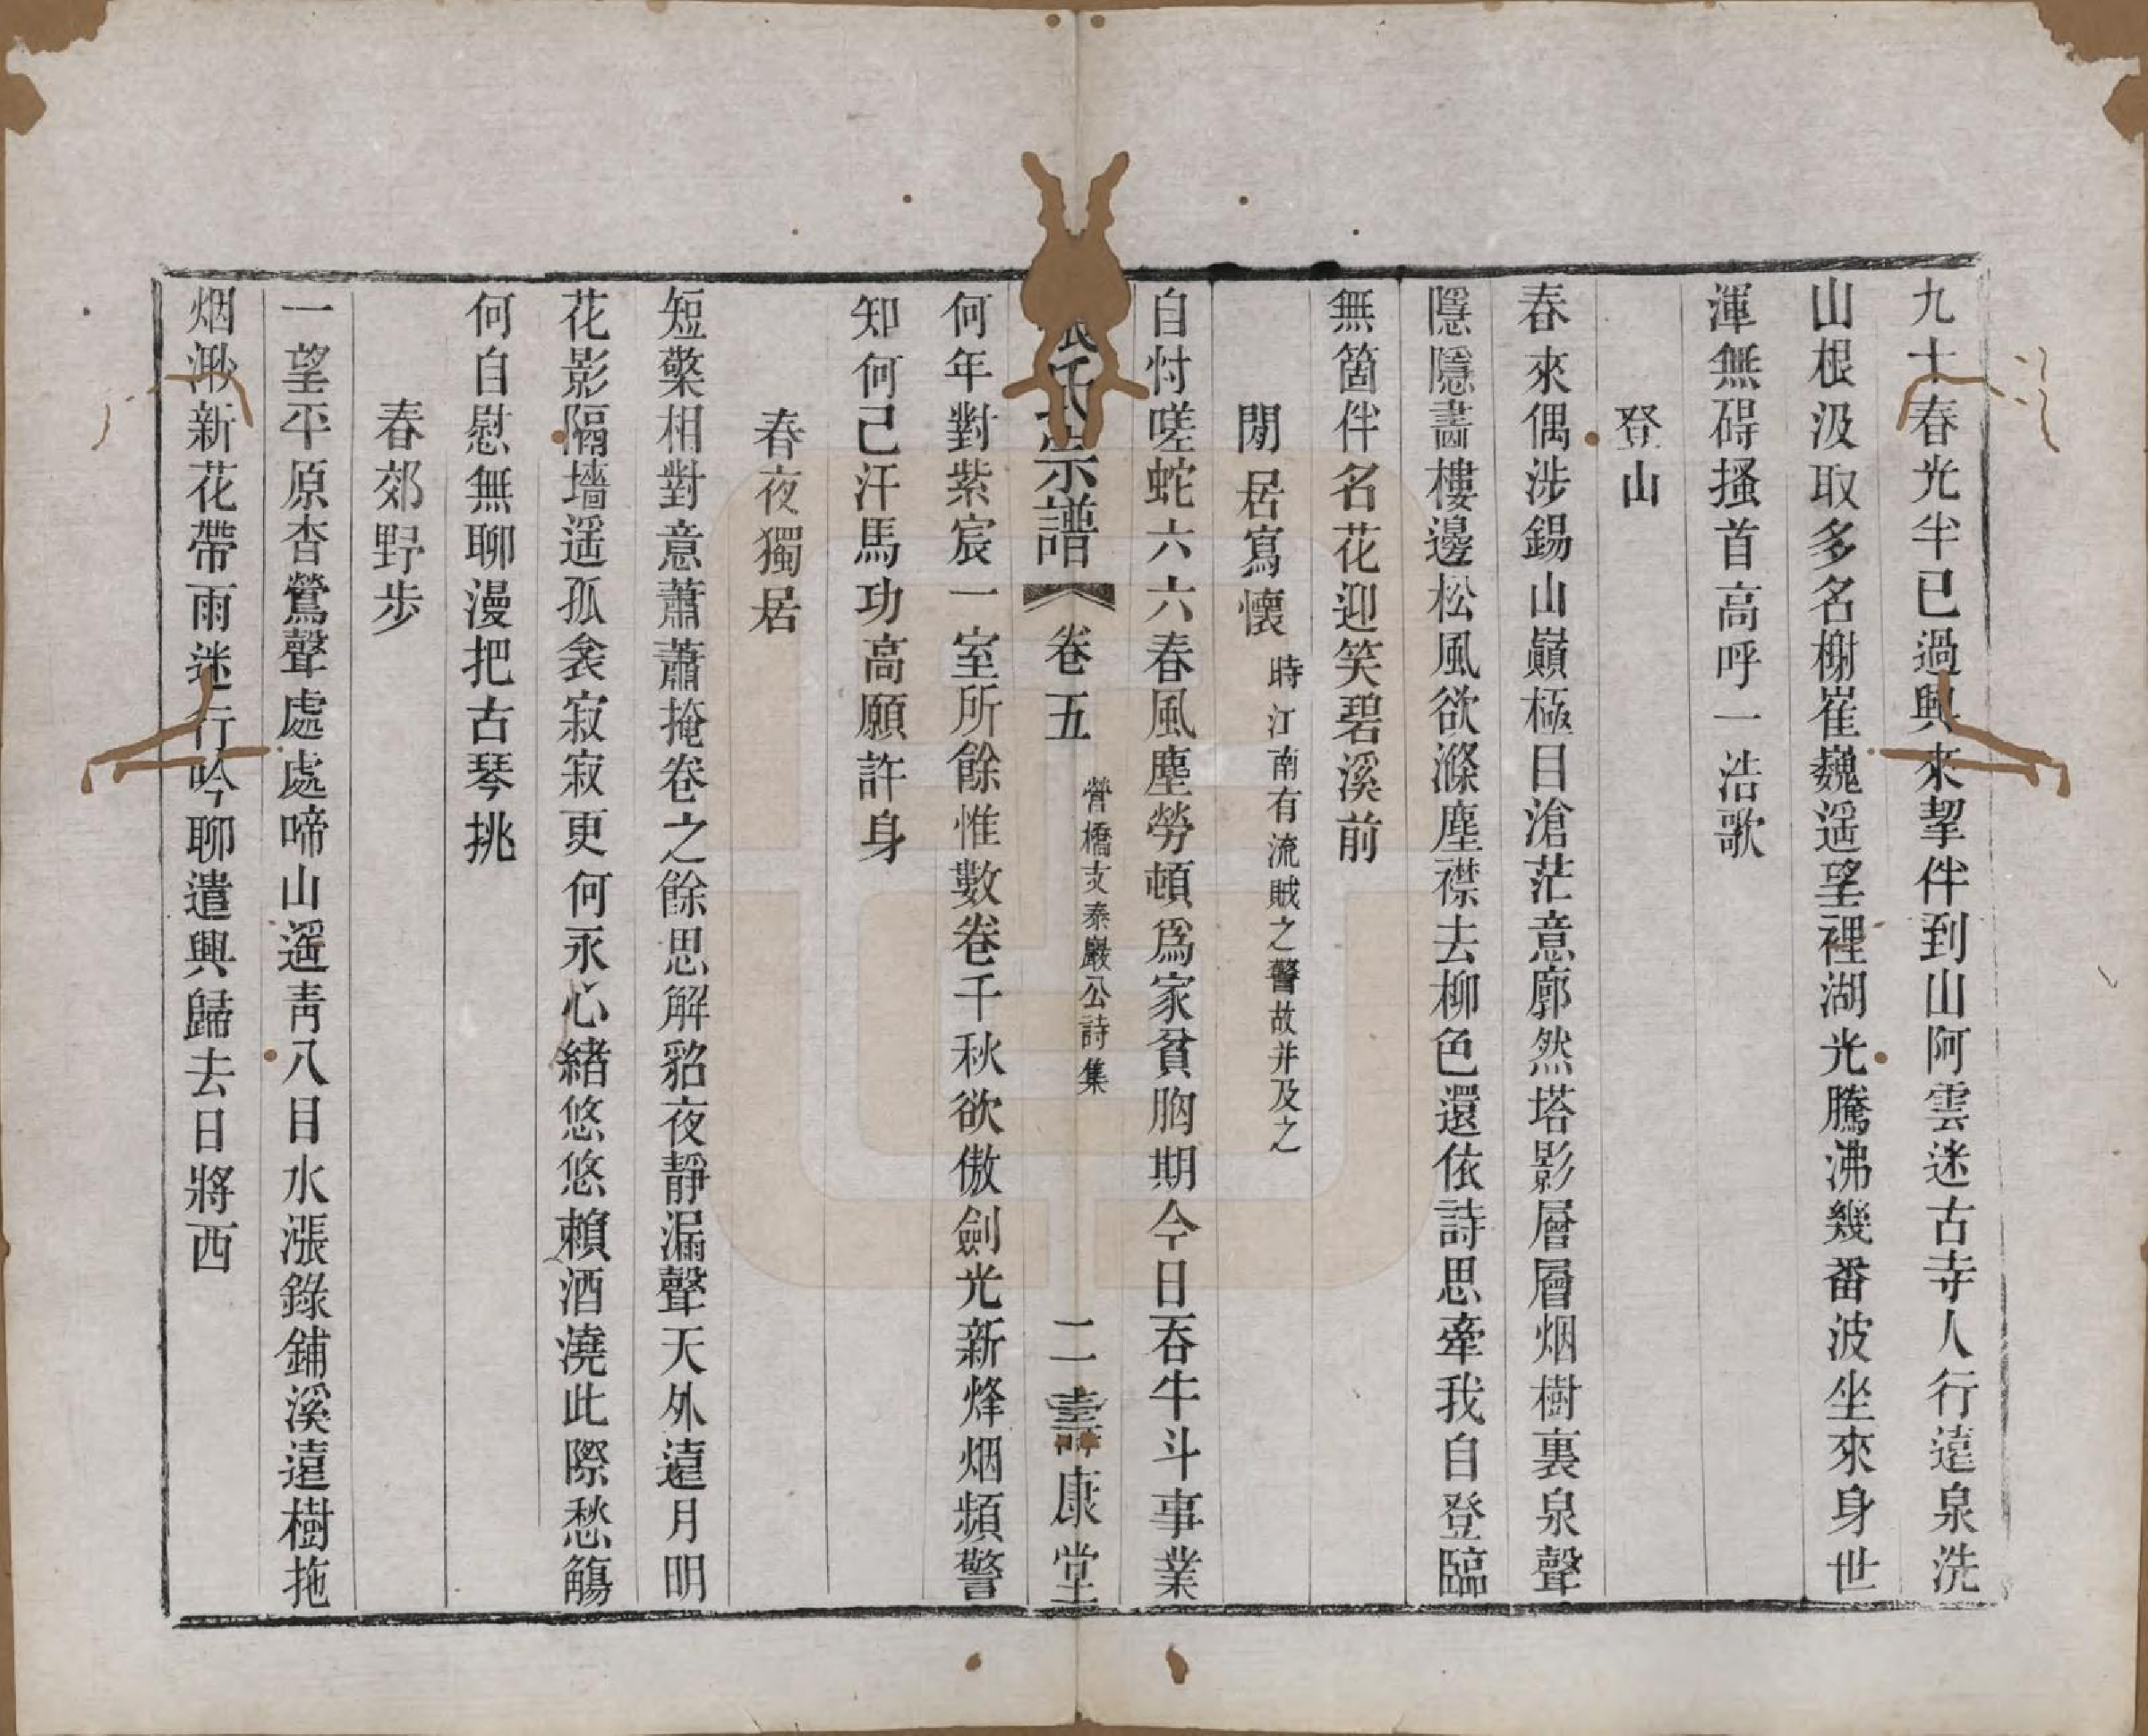 九十春光半已過興來挈伴到山阿雲迷古寺人行遠泉洗
山根汲取多名榭崔巍遥望裡湖光騰沸幾番波坐來身世
渾無碍搔首高呼一浩歌
登山
春來偶涉錫山巔極目滄茫意廓然塔影層層烟樹裏泉聲
隱隱畵樓邊松風欲滌塵襟去柳色還依詩思牽我自登臨
無箇伴名花迎笑碧溪前
閒居寫懷 時江南有流賊之警故并及之
自忖嗟蛇六六春風塵勞頓爲家貧胸期今日吞牛斗事業
氏宗譜 卷五 營橋支泰巖公詩集 二 壽康堂
何年對紫宸一室所餘惟數卷千秋欲傲劍光新烽烟頻警
知何己汗馬功高願許身
春夜獨居
短檠相對意蕭蕭掩卷之餘思解貂夜靜漏聲天外遠月明
花影隔墻遥孤衾寂寂更何永心緒悠悠賴酒澆此際愁觴
何自慰無聊漫把古琴挑
春郊野步
一望平原杳鶯聲處處啼山遥青八目水漲錄鋪溪遠樹拖
烟潄新花帶雨迷行吟聊遣興歸去日將西